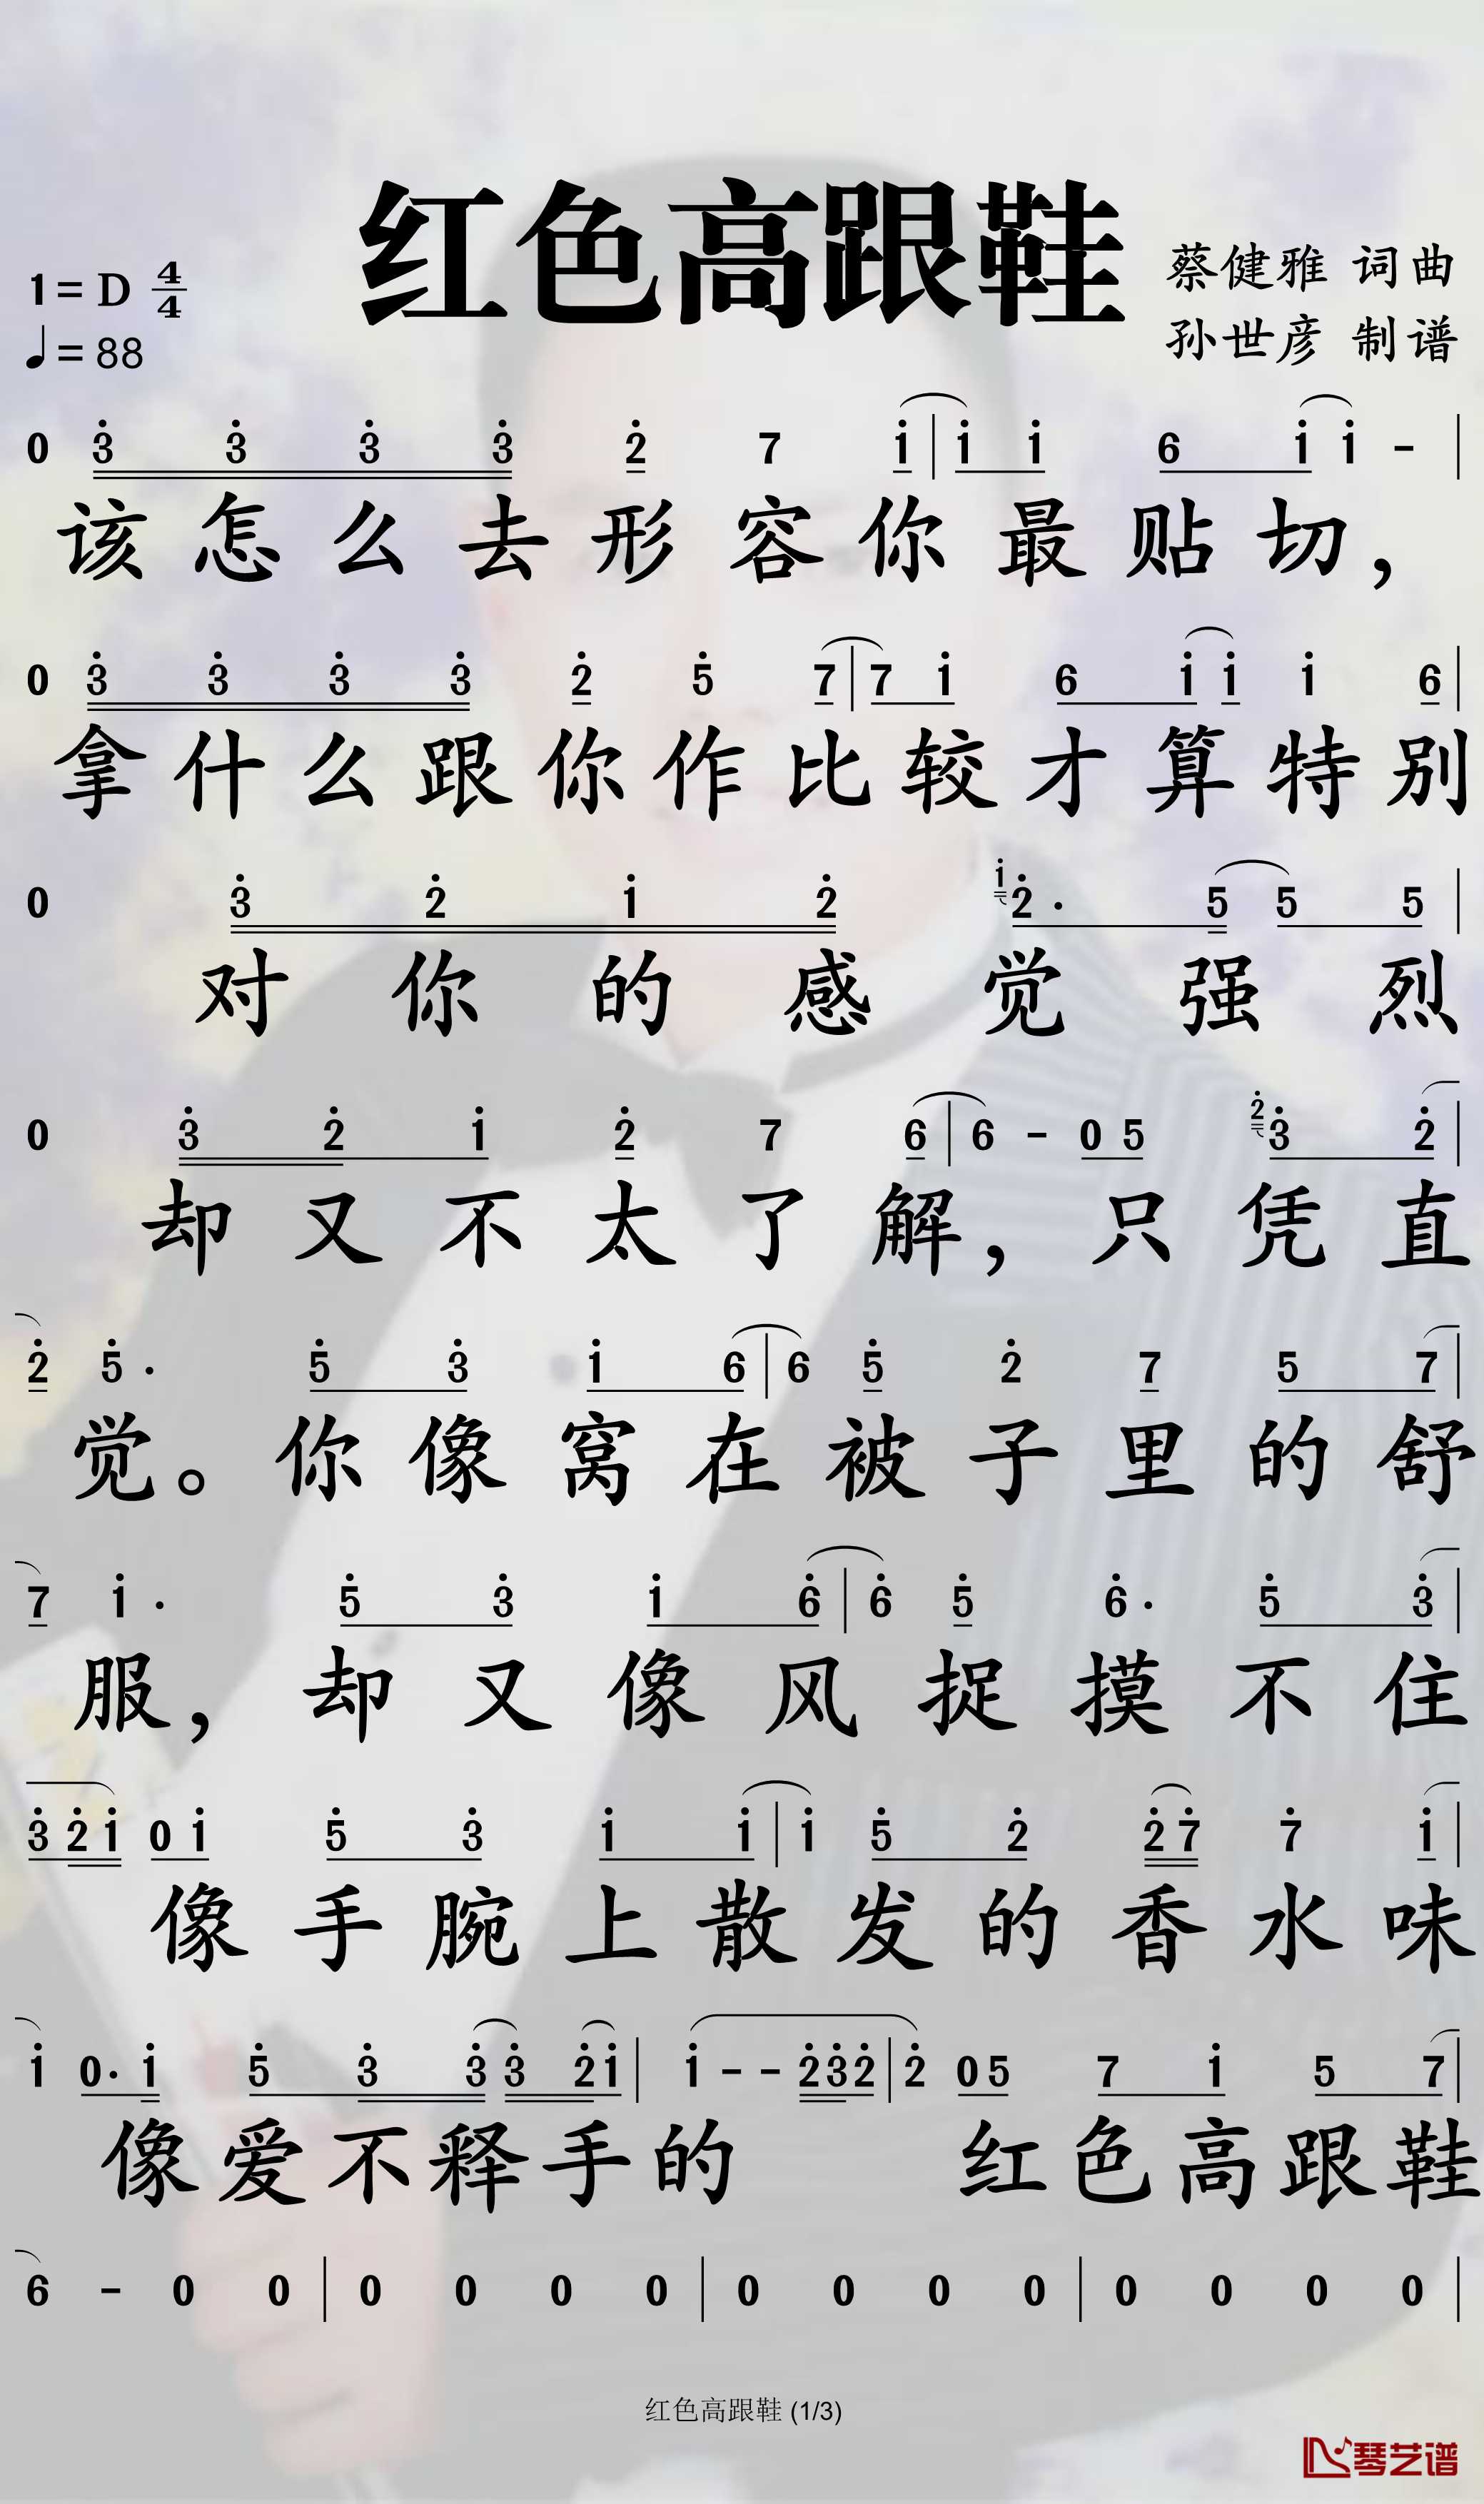 红色高跟鞋
1=D 4/4
♩=88
蔡健雅 词曲
孙世彦 制谱
0 3̇ 3̇ 3̇ 3̇ 2̇ 7 1̇ | 1̇ 1̇ 6 1̇ 1̇ - |
该怎么去形容你最贴切，
0 3̇ 3̇ 3̇ 3̇ 2̇ 5̇ 7 | 7 1̇ 6 1̇ 1̇ 1̇ 6 |
拿什么跟你作比较才算特别
0 3̇ 2̇ 1̇ 2̇ 1̇ 2̇· 5 5 5 |
对你的感觉强烈
0 3̇ 2̇ 1̇ 2̇ 7 6 | 6 - 0 5 2̇ 3̇ 2̇ |
却又不太了解，只凭直
2̇ 5̇· 5̇ 3̇ 1̇ 6 | 6 5̇ 2̇ 7 5 7 |
觉。你像窝在被子里的舒
7 1̇· 5̇ 3̇ 1̇ 6̇ | 6̇ 5̇ 6̇· 5̇ 3̇ |
服，却又像风捉摸不住
3̇ 2̇ 1̇ 0 1̇ 5̇ 3̇ 1̇ 1̇ | 1̇ 5̇ 2̇ 2̇ 7̇ 7̇ 1̇ |
像手腕上散发的香水味
1̇ 0· 1̇ 5̇ 3̇ 3̇ 3̇ 2̇ 1̇ | 1̇ - - 2̇ 3̇ 2̇ | 2̇ 0 5 7 1̇ 5 7 |
像爱不释手的 红色高跟鞋
6 - 0 0 | 0 0 0 0 | 0 0 0 0 | 0 0 0 0 |
红色高跟鞋 (1/3)
琴艺谱